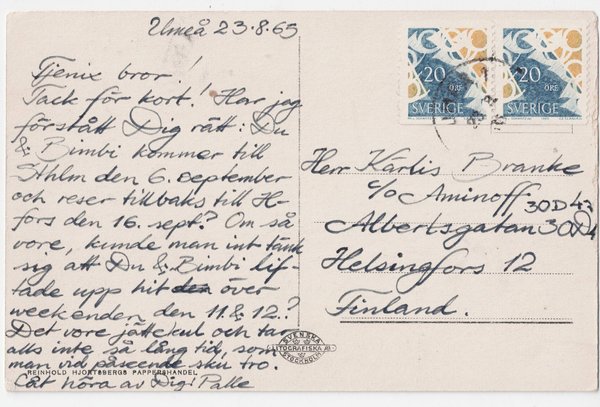 Umeå 23.8.65
Tjenix bror!
Tack för kort! Har jag
förstått Dig rätt: Du
& Bimbi kommer till
Sthlm den 6. september
och reser tillbaks till H-
fors den 16. sept? Om så
vore, kunde man int tänk
sig att Du & Bimbi lif-
tade upp hit den över
weekenden den 11 & 12.?
Det vore jättekul och ta
alls inte så lång tid, som
man vid påseende sku tro.
Låt höra av Dig! Palle
REINHOLD HJORTSBERGS PAPPERSHANDEL
SVENSKA
LITOGRAFISKA AB
STOCKHOLM
20 ÖRE
SVERIGE
20 ÖRE
SVERIGE
Herr Kārlis Branke
c/o Aminoff
30D 43
Albertsgatan 30D4
Helsingfors 12
Finland.